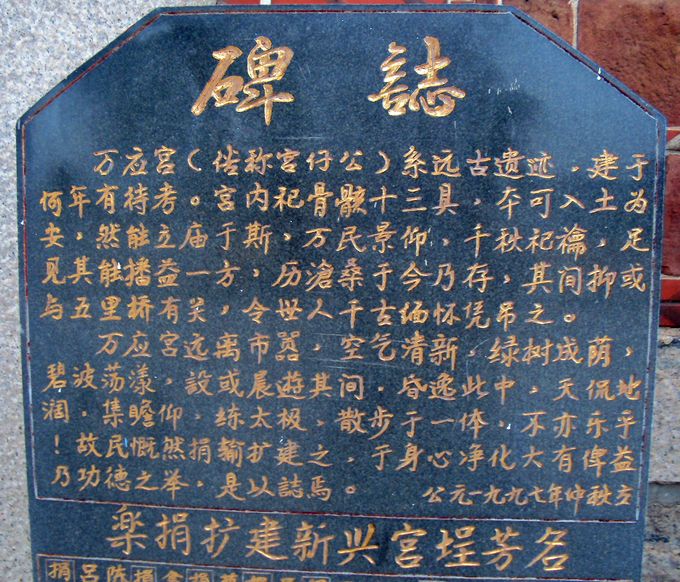 碑誌
万应宫（俗称宫仔公）系远古遗迹，建于
何年有待考。宫内祀骨骸十三具，夲可入土为
安，然能立庙于斯，万民景仰，千秩祀禴，足
见其能播益一方，历沧桑于今乃存，其间抑或
与五里桥有关，令世人千古缅怀凭吊之。
万应宫远离市嚣，空气清新，绿树成荫，
碧波荡漾，設或晨遊其间，昏逸此中，天侃地
润，集瞻仰，练太极，散步于一体，不亦乐乎
！故民慨然捐输扩建之，于身心净化大有俾益
乃功德之举，是以誌焉。公元一九九七年仲秩立
楽捐扩建新兴宫埕芳名